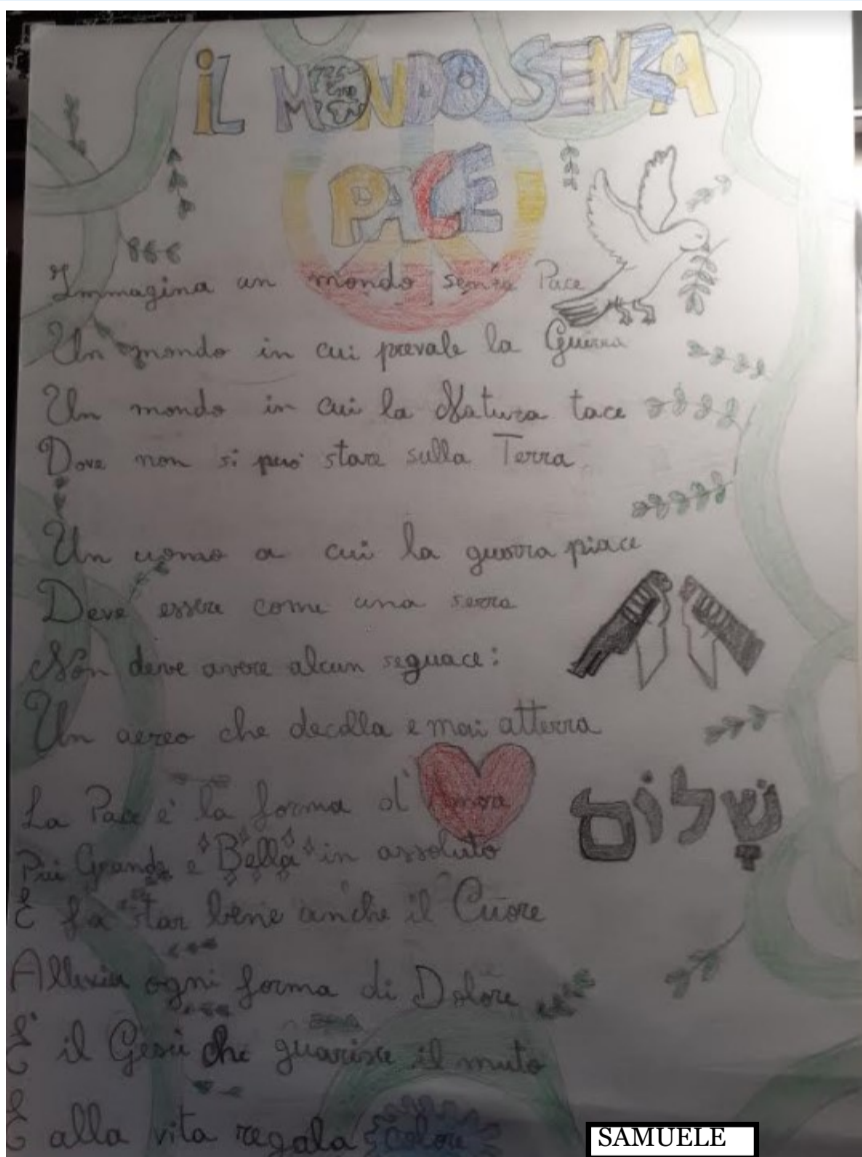 IL MONDO SENZA
PACE
Immagina un mondo senza Pace
Un mondo in cui prevale la Guerra
Un mondo in cui la Natura tace
Dove non si può stare sulla Terra
Un uomo a cui la guerra piace
Deve essere come una serra
Non deve avere alcun seguace:
Un aereo che decolla e mai atterra
La Pace è la forma d'Amore
Più Grande e Bella in assoluto
E fa star bene anche il Cuore
Allevia ogni forma di Dolore
E' il Gesù che guarisce il muto
E alla vita regala colore
שָׁלוֹם
SAMUELE